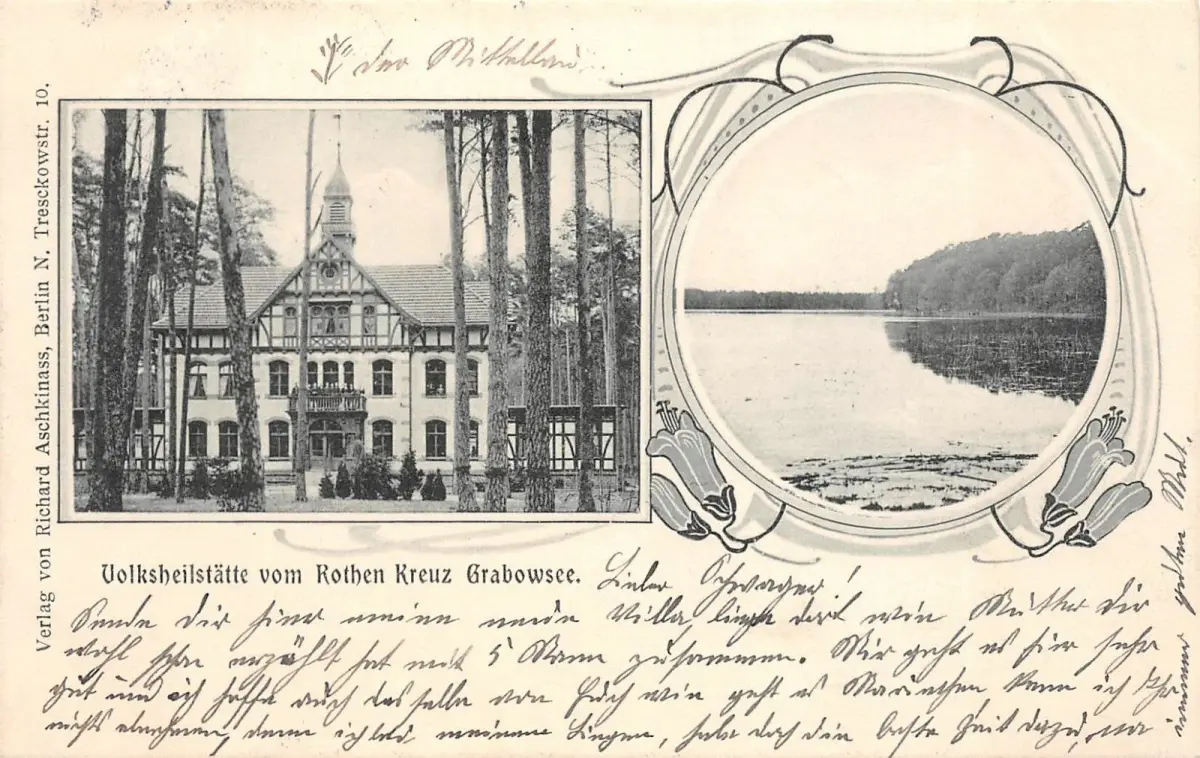 der Mittelbau
Verlag von Richard Aschkinass, Berlin N. Tresckowstr. 10.
Volksheilstätte vom Rothen Kreuz Grabowsee.
Lieber Schwager!
Sende dir hier meine neue Villa, liegen dort wie Mutter dir
wohl schon erzählt hat mit 5 Mann zusammen. Mir geht es hier sehr
gut und ich hoffe auch dasselbe von Euch wie geht es kann ich Ihr
nichts abnehmen, denn ich meinem habe doch die beste Zeit dazu, na
immer guten Mut.